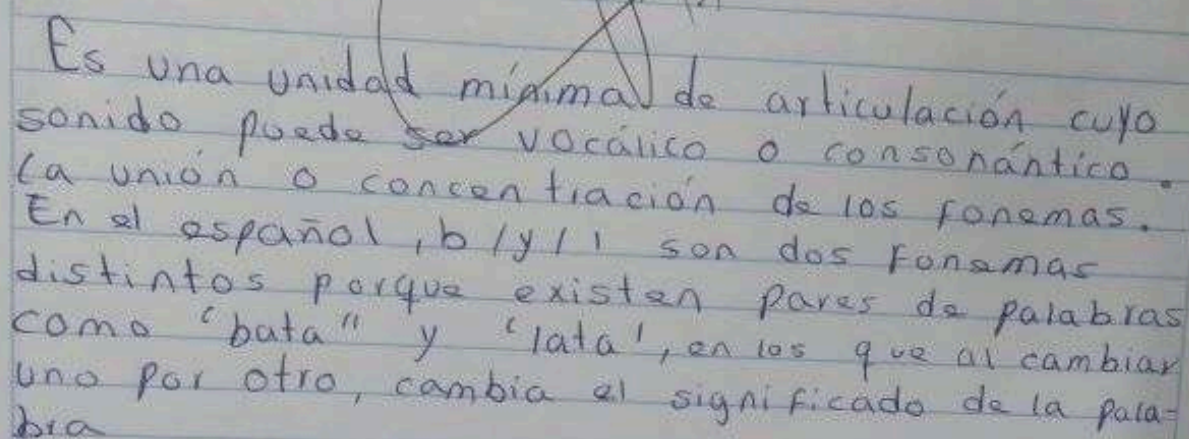 Es una unidad mínima de articulación cuyo
sonido puede ser vocálico o consonántico.
La unión o concentración de los fonemas.
En el español, b/y/l son dos Fonemas
distintos porque existen pares de palabras
como "bata" y 'lata', en los que al cambiar
uno por otro, cambia el significado de la pala-
bra